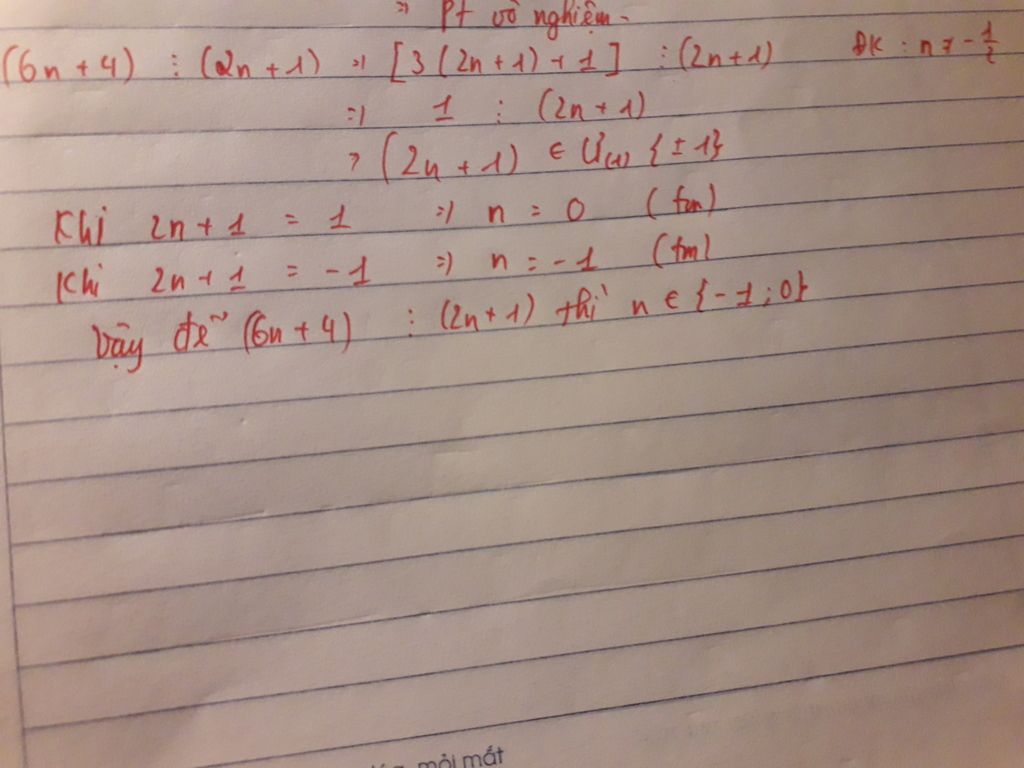 => Pt vô nghiệm.
(6n + 4) ⋮ (2n + 1) => [3(2n+1) + 1] ⋮ (2n+1) ĐK : n ≠ -1/2
=> 1 ⋮ (2n+1)
=> (2n + 1) ∈ Ư(1) {± 1}
Khi 2n + 1 = 1 => n = 0 (tm)
Khi 2n + 1 = -1 => n = -1 (tm)
Vậy để (6n + 4) ⋮ (2n + 1) thì n ∈ {-1 ; 0}
mỏi mắt